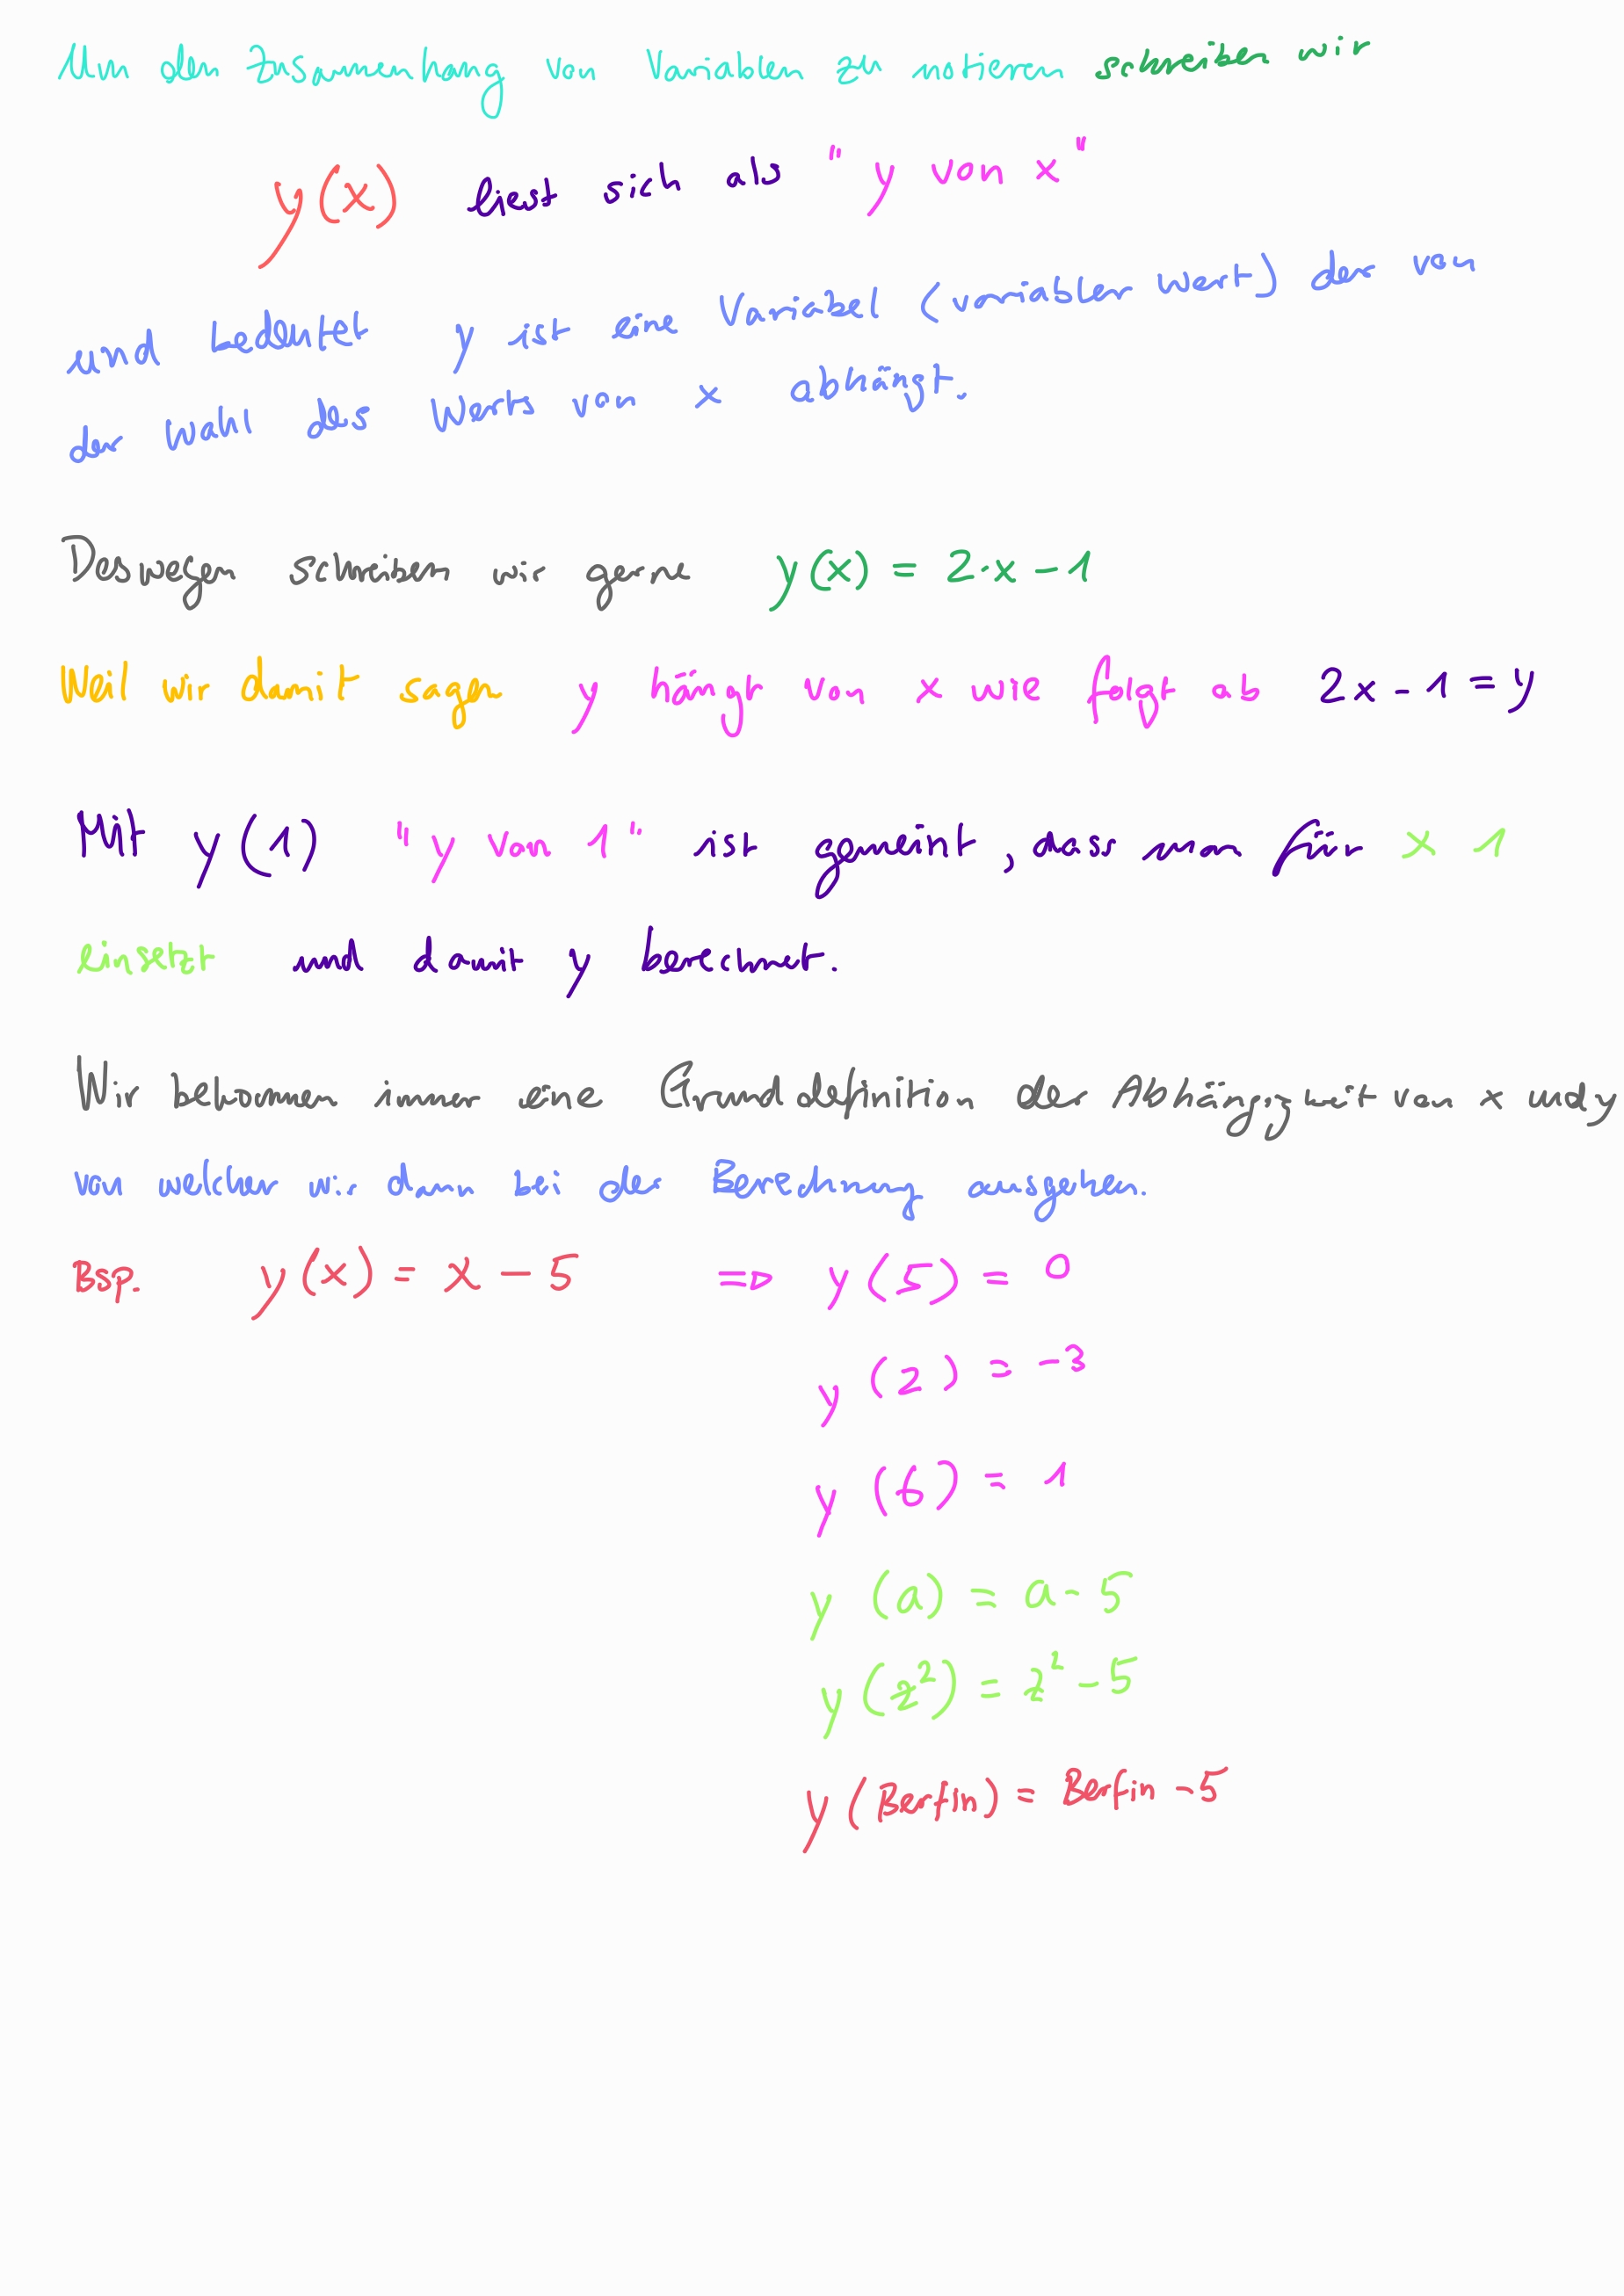 Um den Zusammenhang von Variablen zu notieren schreiben wir
y(x) liest sich als "y von x"
und bedeutet y ist eine Variabel (variabler Wert) der von
der Wahl des Werts von x abhängt.
Deswegen schreiben wir gerne y(x) = 2·x - 1
Weil wir damit sagen y hängt von x wie folgt ab 2x - 1 = y
Mit y(1) "y von 1" ist gemeint, dass man für x 1
einsetzt und damit y berechnet.
Wir bekommen immer eine Grunddefinition der Abhängigkeit von x und y
von welcher wir dann bei der Berechnung ausgehen.
Bsp. y(x) = x - 5 => y(5) = 0
y(2) = -3
y(6) = 1
y(a) = a - 5
y(z²) = z² - 5
y(Berfin) = Berfin - 5